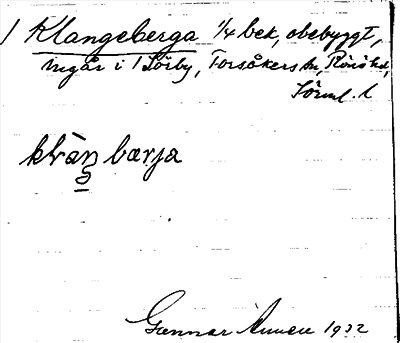 1 Klangeberga 1/4 bek, obebyggt,
ingår i 1 Sörby, Forsåkers sn, Rönö hd,
Sörml. l
klràŋ bærja
Gunnar 1932